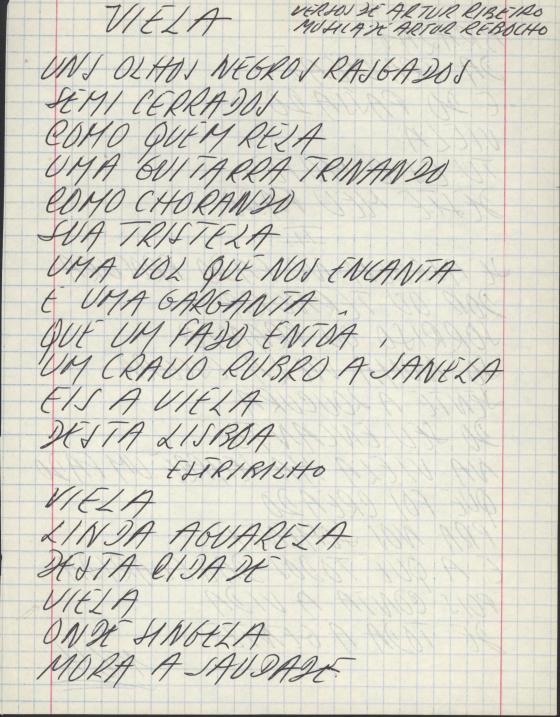 VIELA
VERSOS DE ARTUR RIBEIRO
MUSICA DE ARTUR REBOCHO
UNS OLHOS NEGROS RASGADOS
SEMI CERRADOS
COMO QUEM REZA
UMA GUITARRA TRINANDO
COMO CHORANDO
SUA TRISTEZA
UMA VOZ QUE NOS ENCANTA
E UMA GARGANTA
QUE UM FADO ENTOA
UM CRAVO RUBRO A JANELA
EIS A VIELA
DESTA LISBOA
ESTRIBILHO
VIELA
LINDA AGUARELA
DESTA CIDADE
VIELA
ONDE SINGELA
MORA A SAUDADE